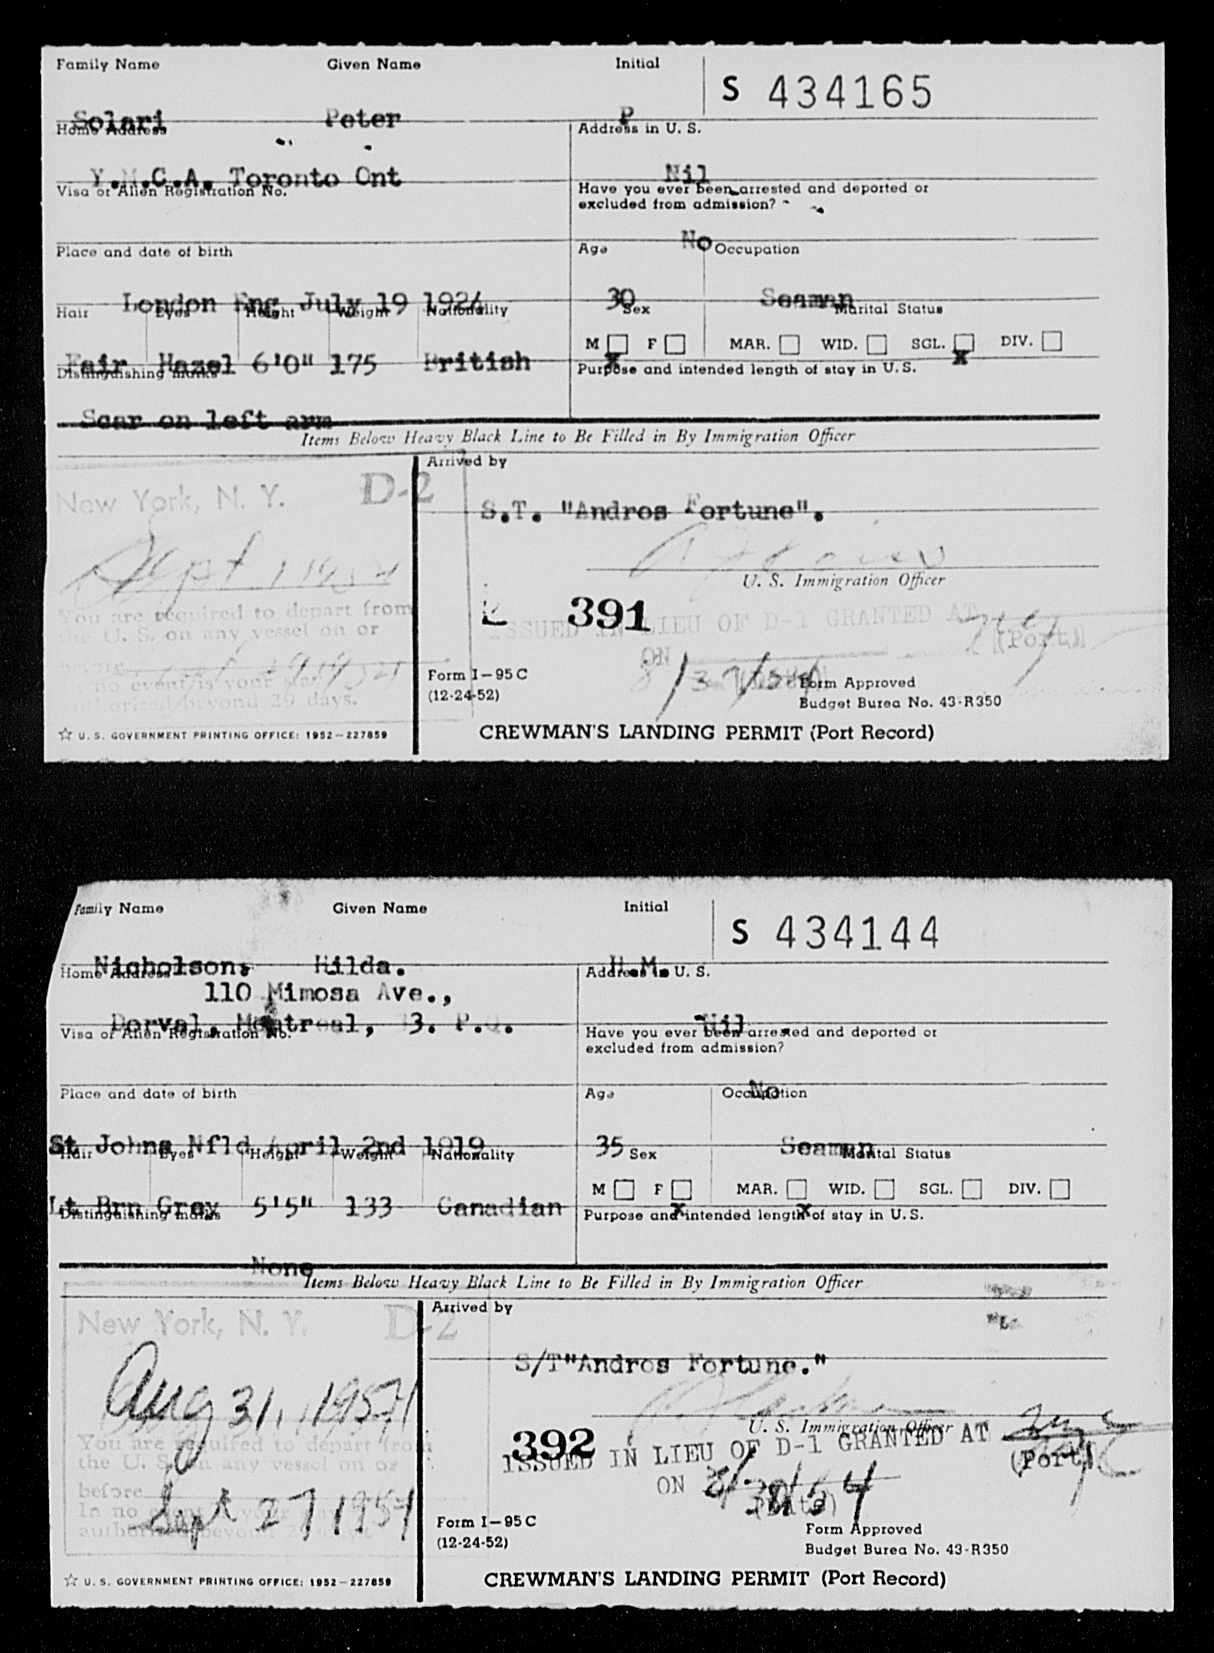 Family Name Given Name Initial
S 434165
Solari Peter P
Home Address Address in U. S.
Y.M.C.A. Toronto Ont Nil
Visa or Alien Registration No. Have you ever been arrested and deported or
excluded from admission?
No
Place and date of birth Age Occupation
London Eng July 19 1924 30 Seaman
Hair Eyes Height Weight Nationality Sex Marital Status
M F MAR. WID. SGL. DIV.
Fair Hazel 6'0" 175 British X X
Distinguishing marks Purpose and intended length of stay in U. S.
Scar on left arm
Items Below Heavy Black Line to Be Filled in By Immigration Officer
Arrived by
New York, N. Y. D-2
S.T. "Andros Fortune".
Sept 1 1954
U. S. Immigration Officer
You are required to depart from
the U. S. on any vessel on or
before
391
ISSUED IN LIEU OF D-1 GRANTED AT
(Port)
ON
no event is your stay
authorized beyond 29 days.
Form I-95 C
(12-24-52)
Form Approved
Budget Burea No. 43-R350
☆ U. S. GOVERNMENT PRINTING OFFICE: 1952-227859
CREWMAN'S LANDING PERMIT (Port Record)
Family Name Given Name Initial
S 434144
Nicholson, Hilda. H.M.
Home Address Address in U. S.
110 Mimosa Ave.,
Dorval, Montreal, 3. P.Q. Nil
Visa or Alien Registration No. Have you ever been arrested and deported or
excluded from admission?
No
Place and date of birth Age Occupation
St Johns Nfld April 2nd 1919 35 Seaman
Hair Eyes Height Weight Nationality Sex Marital Status
M F MAR. WID. SGL. DIV.
Lt Brn Gray 5'5" 133 Canadian X X
Distinguishing marks Purpose and intended length of stay in U. S.
None
Items Below Heavy Black Line to Be Filled in By Immigration Officer
Arrived by
New York, N. Y. D-2
S/T"Andros Fortune."
Aug 31, 1954
U. S. Immigration Officer
You are required to depart from
the U. S. on any vessel on or
before
Sept 27 1954
In no
authorized beyond
392
ISSUED IN LIEU OF D-1 GRANTED AT
(Port)
ON 8/30/54
(Date)
Form I-95 C
(12-24-52)
Form Approved
Budget Burea No. 43-R350
☆ U. S. GOVERNMENT PRINTING OFFICE: 1952-227859
CREWMAN'S LANDING PERMIT (Port Record)